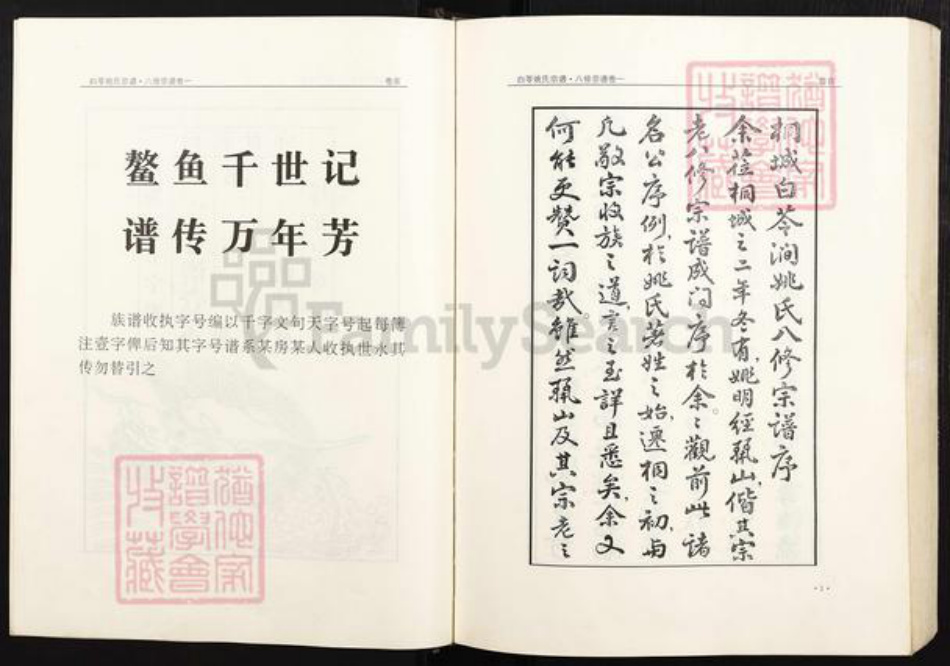 白苓姚氏宗谱·八修宗谱卷一
卷首
鳌鱼千世记
谱传万年芳
族谱收执字号编以千字文句天字号起每簿
注壹字俾后知其字号谱系某房某人收执世永其
传勿替引之
白苓姚氏宗谱·八修宗谱卷一
卷首
桐城白苓涧姚氏八修宗谱序
余莅桐城之二年冬有姚明經珮山偕其宗
老八修宗谱成问序於余々觀前此诸
名公序例於姚氏著姓之始遷桐之初与
凡敬宗收族之道言之至詳且悉矣余又
何能更赞一词哉雖然珮山及其宗老之
·1·
FamilySearch
譜學會
收藏